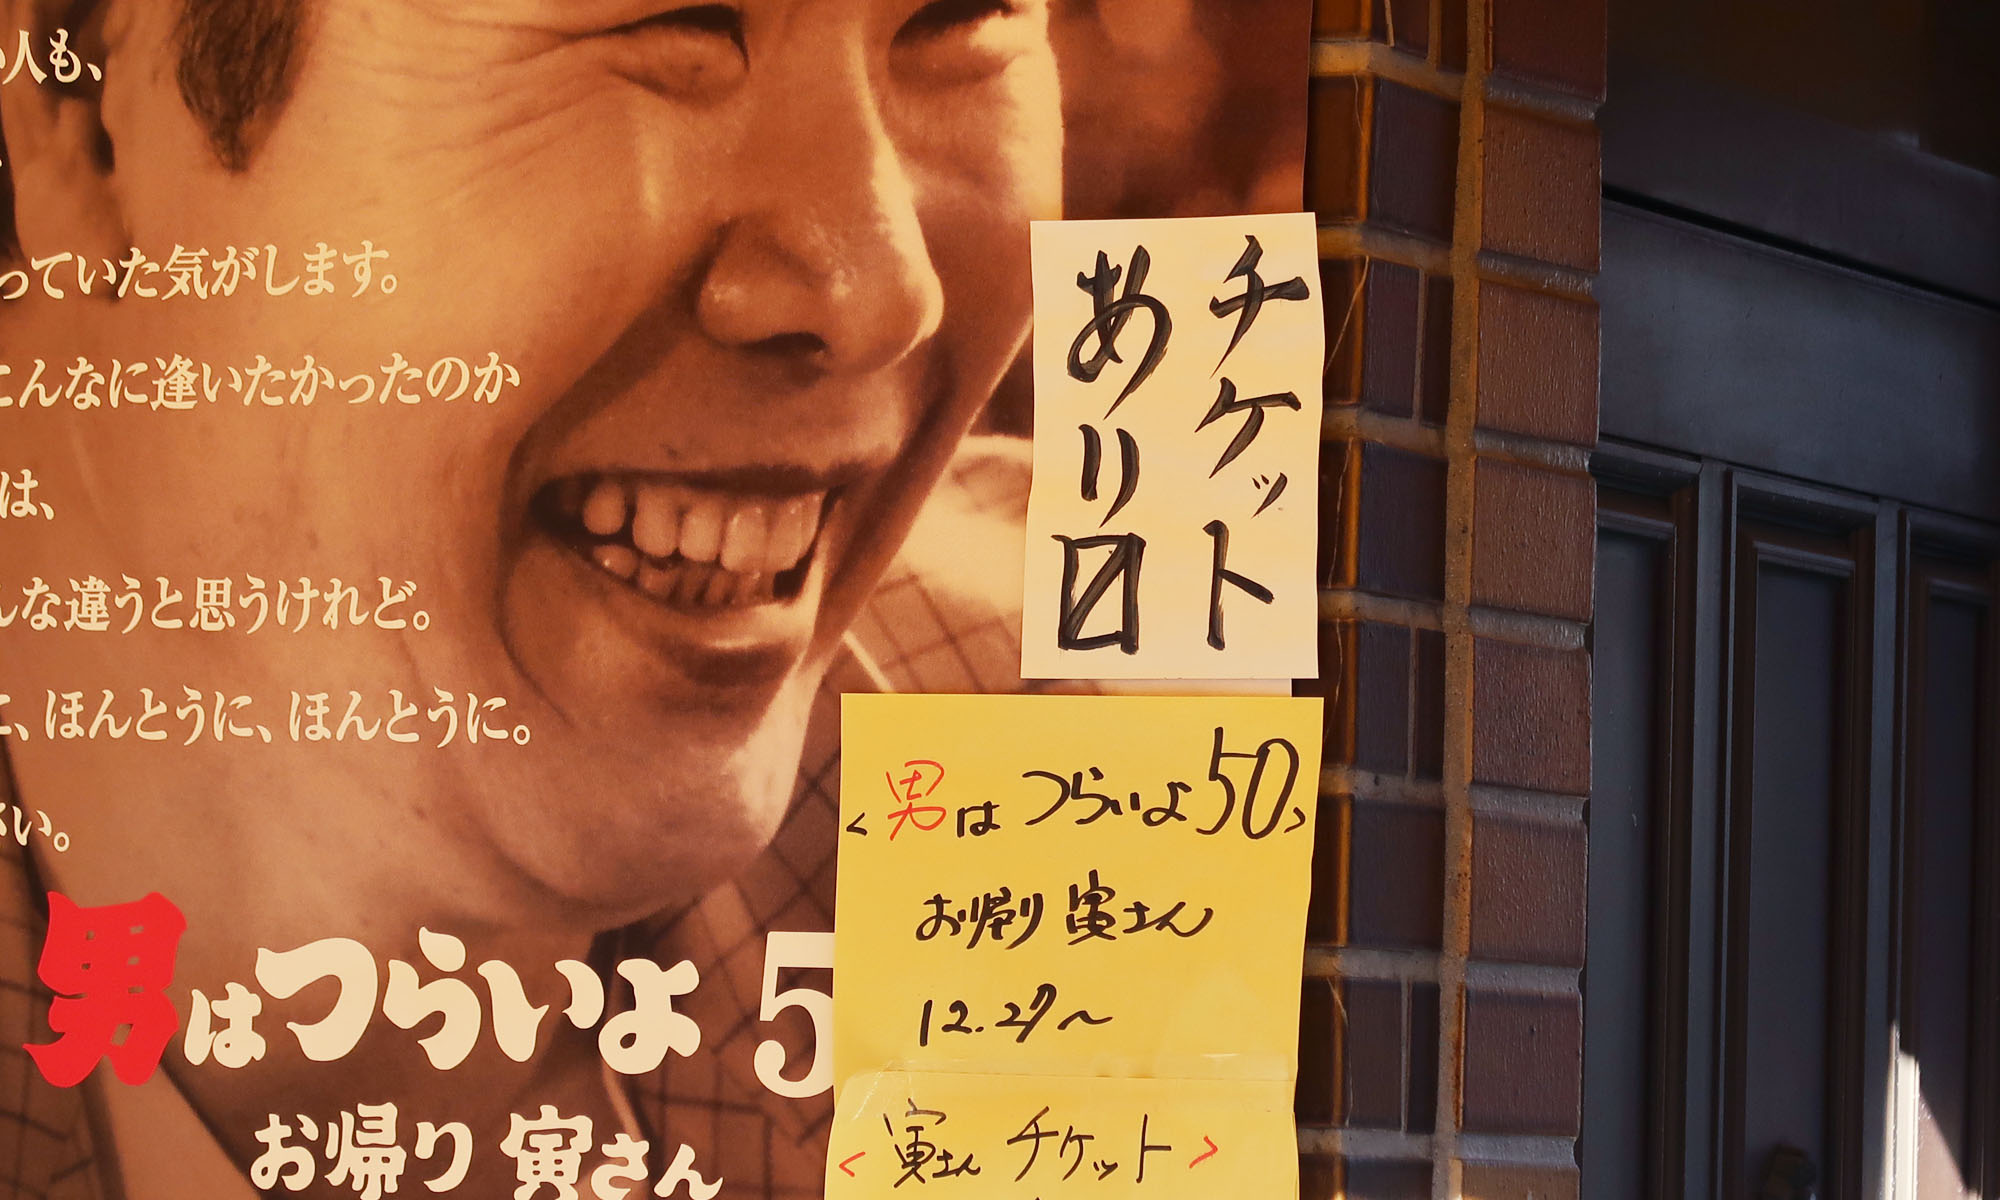 人も、
っていた気がします。
こんなに逢いたかったのか
は、
んな違うと思うけれど。
に、ほんとうに、ほんとうに。
さい。
男はつらいよ 5
お帰り 寅さん
チケット
あり〼
<男はつらいよ50>
お帰り 寅さん
12.27〜
<寅さん チケット>